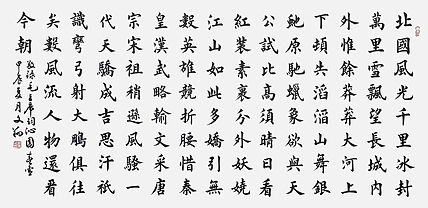 北國風光千里冰封
萬里雪飄望長城內
外惟餘莽莽大河上
下頓失滔滔山舞銀
蛇原馳蠟象欲與天
公試比高須晴日看
紅裝素裹分外妖嬈
江山如此多嬌引無
數英雄競折腰惜秦
皇漢武略輸文采唐
宗宋祖稍遜風騷一
代天驕成吉思汗祇
識彎弓射大鵰俱往
矣數風流人物還看
今朝
敬錄毛主席詞沁園春雪
夏月文